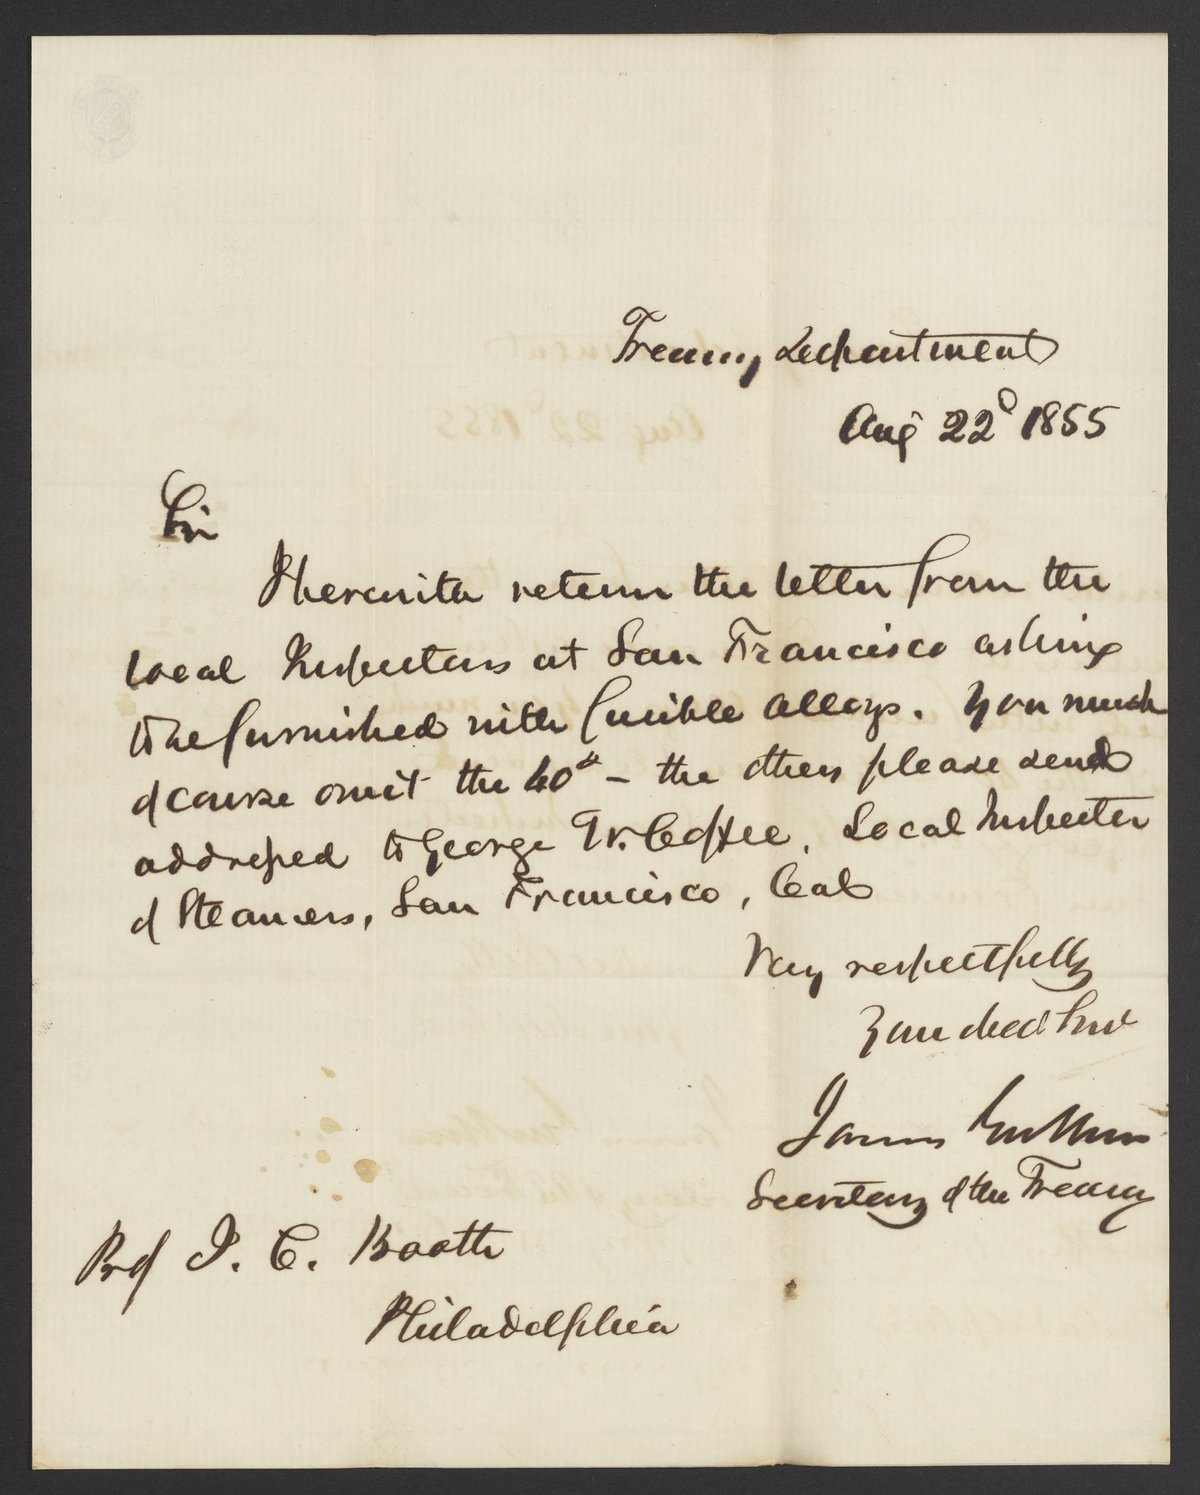 Treasury Department
Aug 22d 1855
Sir
I herewith return the letter from the
local Inspectors at San Francisco asking
to be furnished with fusible alloys. You must
of course omit the 40th – the others please send
addressed to George W. Coffee, Local Inspector
of Steamers, San Francisco, Cal
Very respectfully
Your obed Srvt
James Guthrie
Secretary of the Treasury
Prof J. C. Booth
Philadelphia